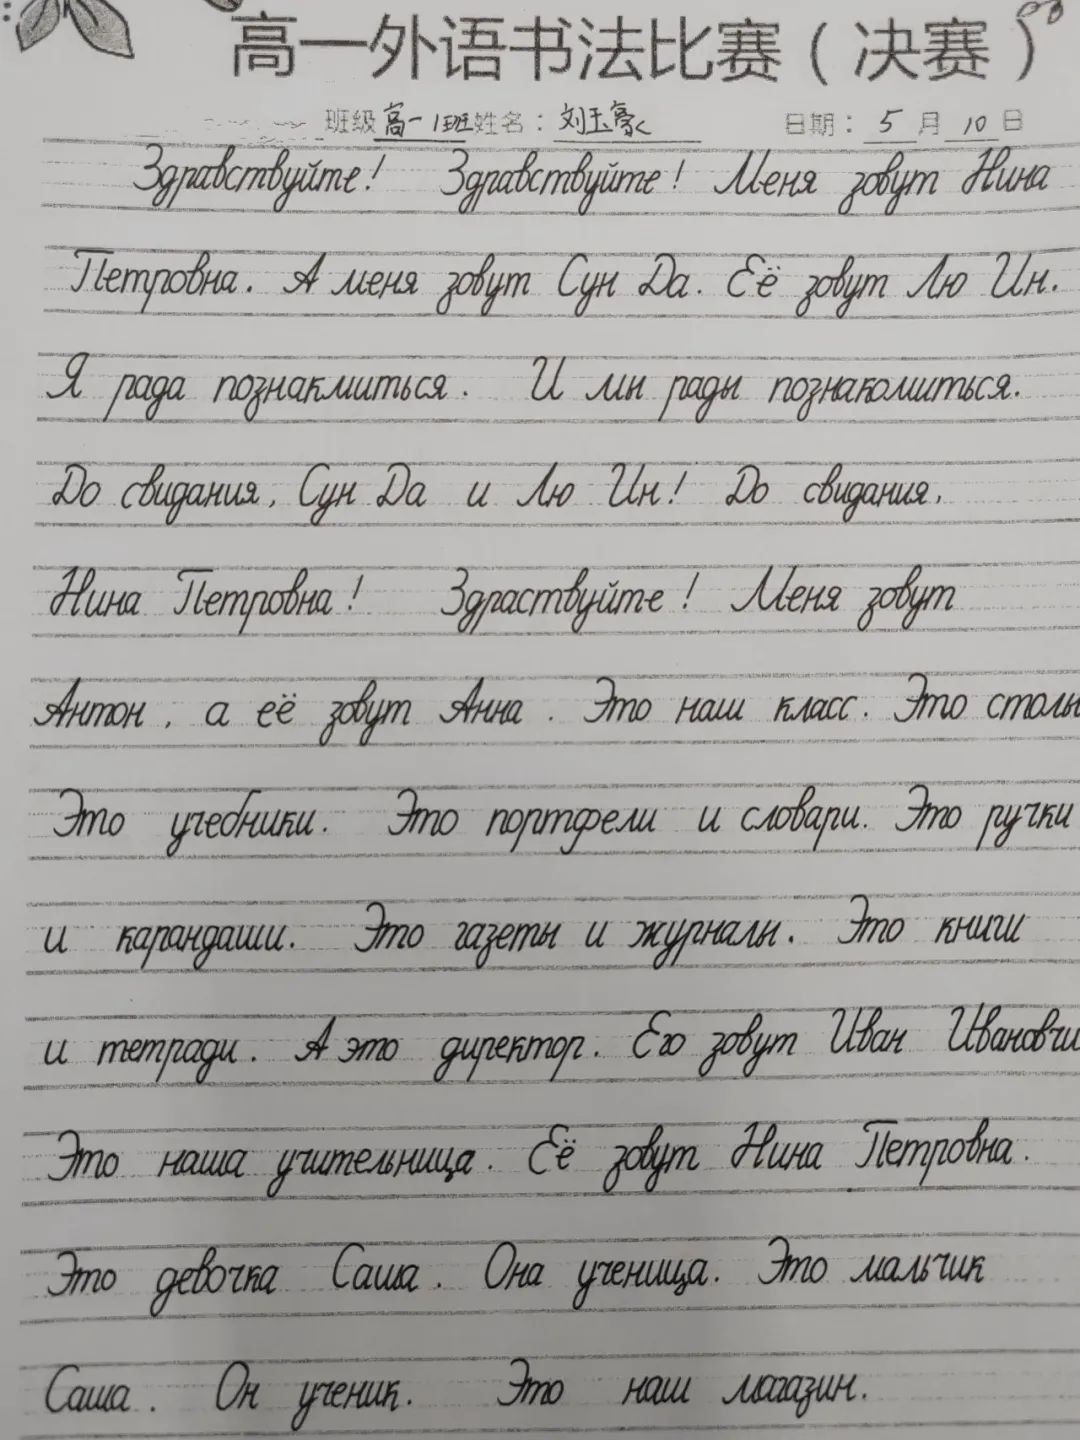 高一外语书法比赛（决赛）
班级 高一1班 姓名：刘玉豪 日期：5月10日
Здравствуйте! Здравствуйте! Меня зовут Нина
Петровна. А меня зовут Сун Да. Её зовут Лю Ин.
Я рада познакмиться. И мы рады познакомиться.
До свидания, Сун Да и Лю Ин! До свидания,
Нина Петровна! Здраствуйте! Меня зовут
Антон, а её зовут Анна. Это наш класс. Это столы
Это учебники. Это портфели и словари. Это ручки
и карандаши. Это газеты и журналы. Это книги
и тетради. А это директор. Его зовут Иван Ивановчи
Это наша учительница. Её зовут Нина Петровна.
Это девочка Саша. Она ученица. Это мальчик
Саша. Он ученик. Это наш магазин.